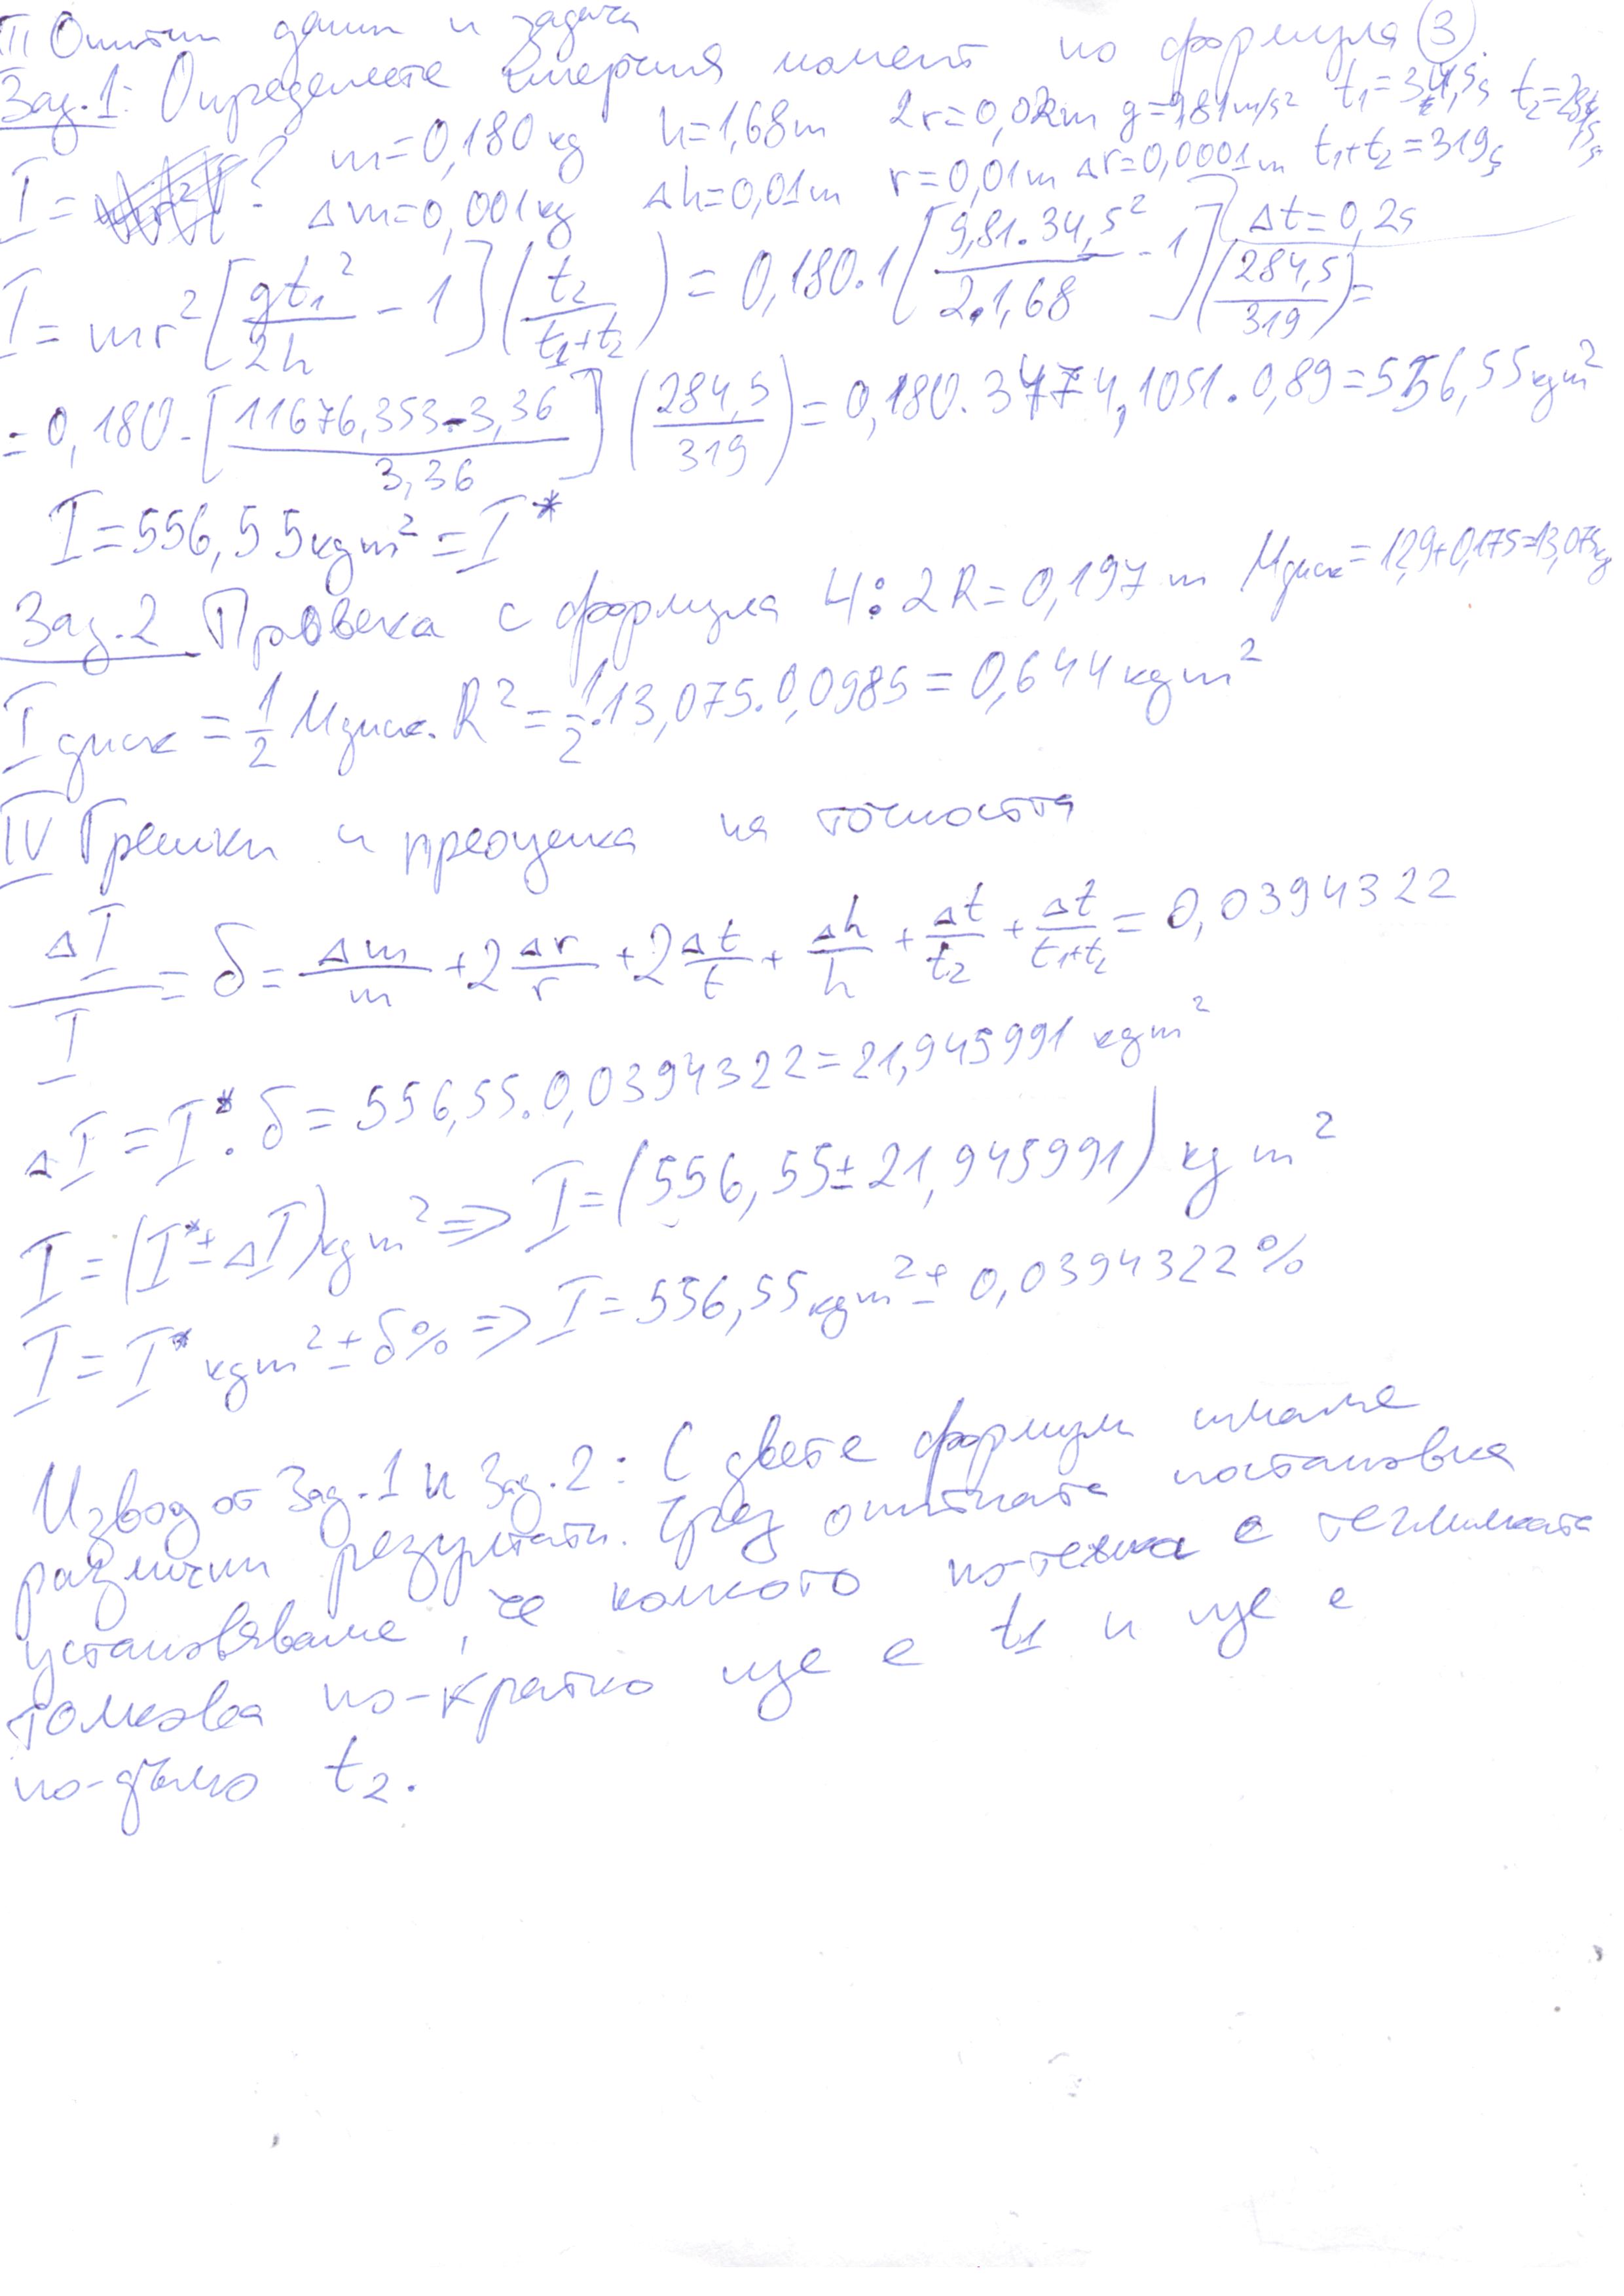 III Опитни данни и задачи
Зад.1: Определете инерчния момент по формула (3).
I = ? m=0,180 kg h=1,68m 2r=0,02m g=9,81m/s² t₁=34,5s t₂=284,5s
Δm=0,001kg Δh=0,01m r=0,01m Δr=0,0001m t₁+t₂=319s
Δt=0,2s
I = mr²[gt₁²/2h - 1](t₂/t₁+t₂) = 0,180.1[9,81.34,5²/2.1,68 - 1](284,5/319)=
= 0,180.[11676,353-3,36/3,36](284,5/319) = 0,180.3474,1051.0,89=556,55kgm²
I=556,55kgm²=I*
Зад.2 Провека с формула 4: 2R=0,197 m Mдиск=12,9+0,175=13,075kg
Iдиск = 1/2 Mдиск.R² = 1/2.13,075.0,0985 = 0,644kgm²
IV Грешки и преоценка на точността
ΔI/I = δ = Δm/m + 2Δr/r + 2Δt/t + Δh/h + Δt/t₂ + Δt/t₁+t₂ = 0,0394322
ΔI = I*.δ = 556,55.0,0394322=21,945991 kgm²
I = (I*±ΔI)kgm² => I=(556,55±21,945991) kgm²
I = I* kgm² ± δ% => I=556,55kgm² ± 0,0394322%
Извод от Зад.1 и Зад.2: С двете формули имаме
различни резултати. Чрез опитната постановка
установяваме, че колкото по-тежка е теглилката
толкова по-кратко ще е t₁ и ще е
по-дълго t₂.